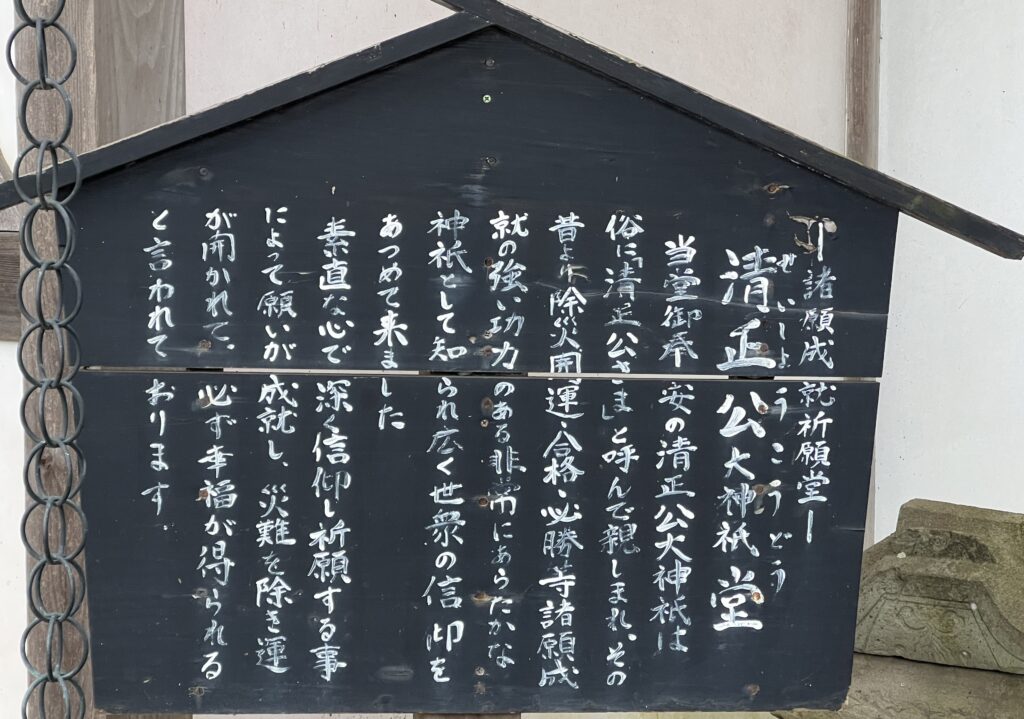 ー諸願成就祈願堂ー
ぜいしょうこうどう
清正公大神祇堂
当堂御奉安の清正公大神祇は
俗に「清正公さま」と呼んで親しまれ、その
昔より除災開運・合格・必勝等諸願成
就の強い功力のある非常にあらたかな
神祇として知られ広く世衆の信仰を
あつめて来ました
素直な心で深く信仰し祈願する事
によって願いが成就し、災難を除き運
が開かれて、必ず幸福が得られる
と言われております.